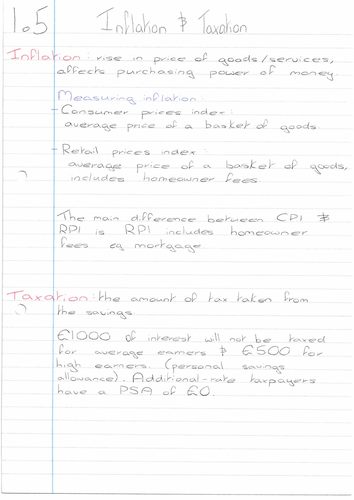 1.5 Inflation & Taxation
Inflation: rise in price of goods/services,
affects purchasing power of money.
Measuring inflation:
- Consumer prices index:
average price of a basket of goods.
- Retail prices index:
average price of a basket of goods,
includes homeowner fees.
The main difference between CPI &
RPI is RPI includes homeowner
fees eg mortgage
Taxation: the amount of tax taken from
the savings.
£1000 of interest will not be taxed
for average earners & £500 for
high earners. (personal savings
allowance). Additional-rate taxpayers
have a PSA of £0.